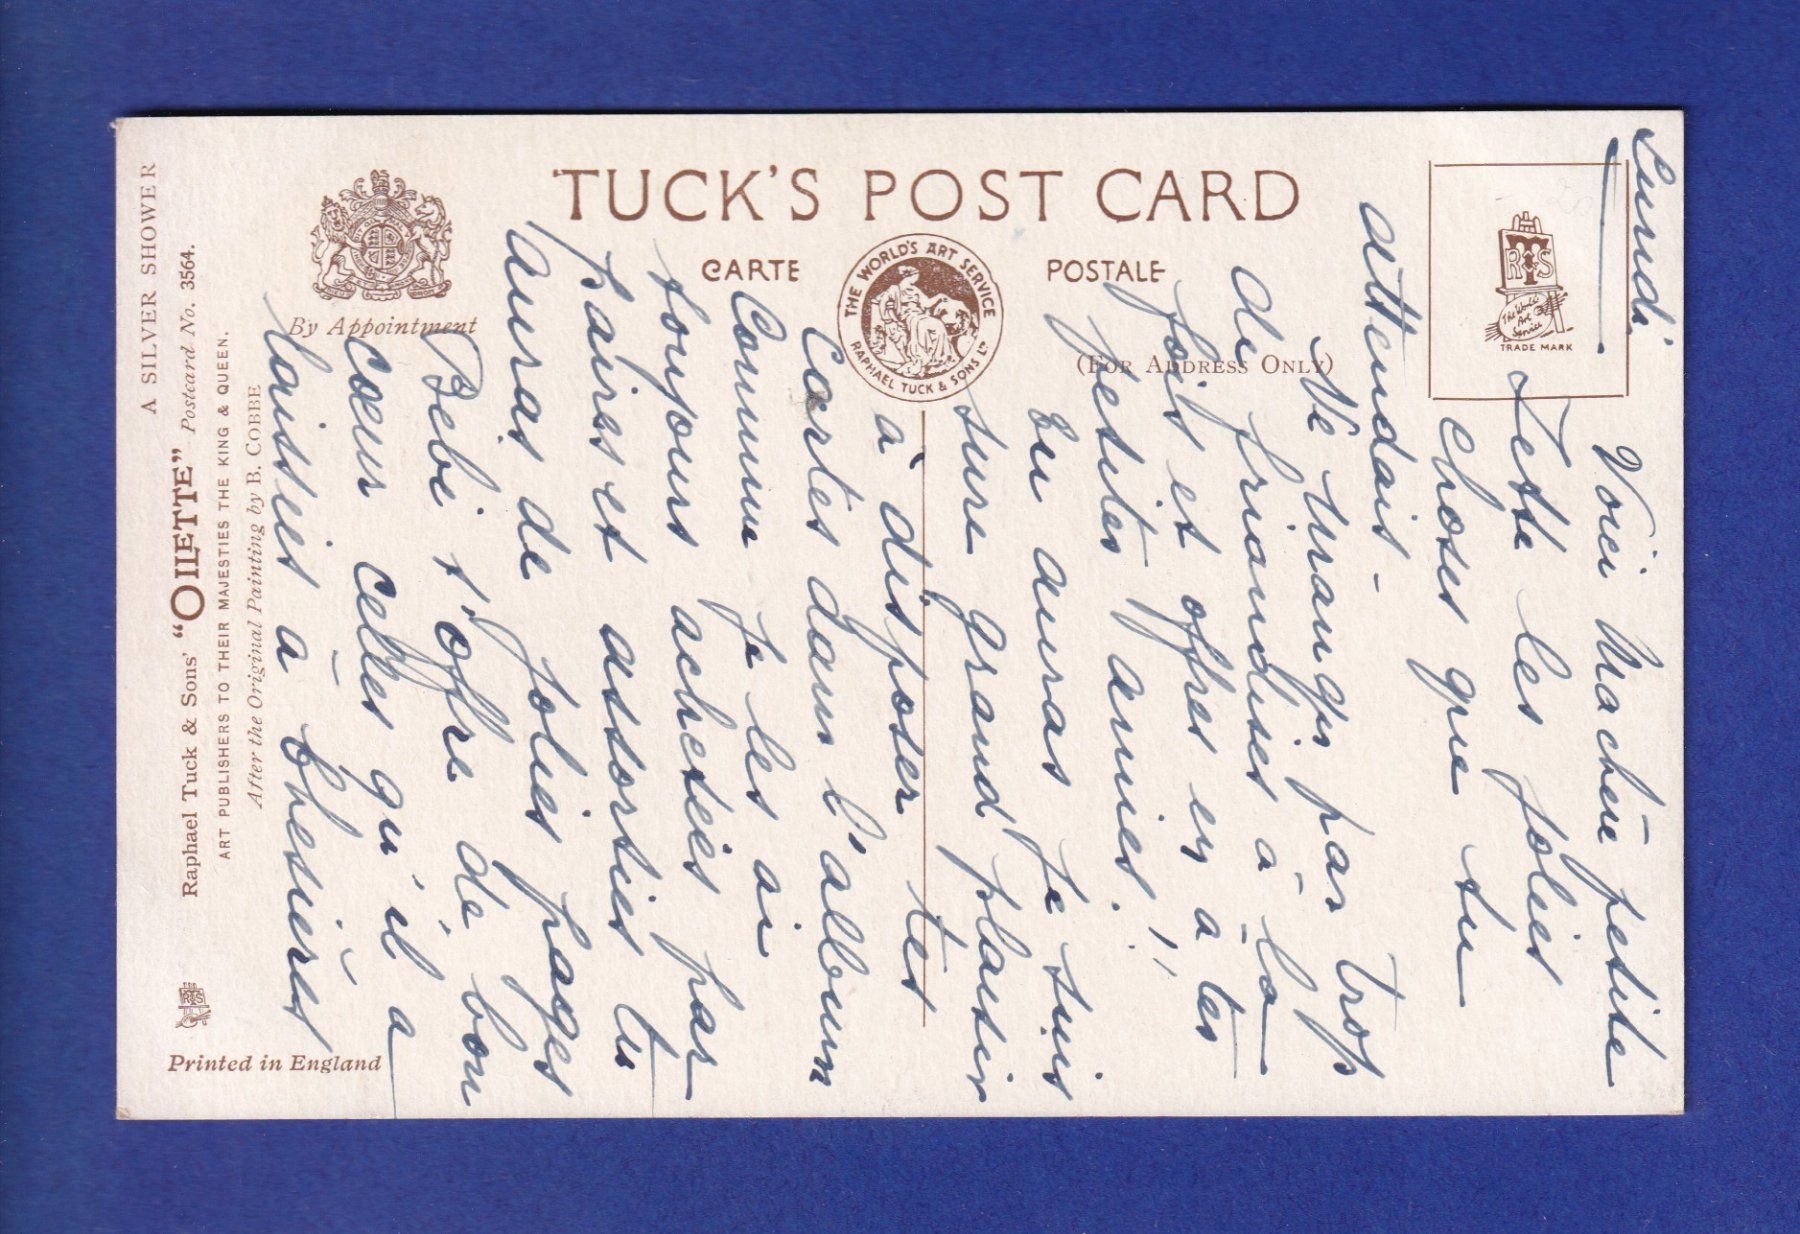 TUCK'S POST CARD
CARTE POSTALE
(FOR ADDRESS ONLY)
By Appointment
THE WORLD'S ART SERVICE
RAPHAEL TUCK & SONS LTD
RTS
The World's Art Service
TRADE MARK
A SILVER SHOWER
Raphael Tuck & Sons' "OILETTE" Postcard No. 3564.
ART PUBLISHERS TO THEIR MAJESTIES THE KING & QUEEN.
After the Original Painting by B. COBBE
RTS
Printed in England
Lundi
Voici ma chère petite
Zette les jolies
choses que tu
attendais -
Ne mange pas trop
de friandises à la
fois et offres en à tes
petites amies.!!
Tu auras je suis
sure grand plaisir
à disposer tes
cartes dans l'album
Comme je les ai
toujours achetées par
paires et assorties tu
auras de jolies pages
Bébé s'offre de bon
cœur celles qu'il a
laissées à Chesières